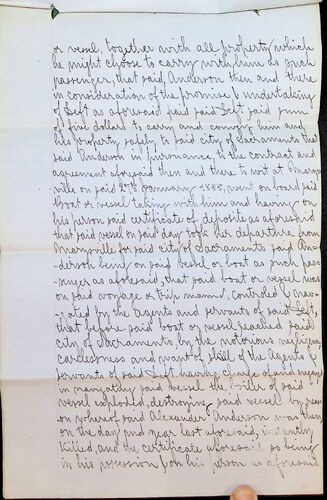 or vessel, together with all property which
he might choose to carry with him as such
passenger, that said Anderson then and there
in consideration of the promise & undertaking
of Deft as aforesaid paid said Deft said sum
of five dollars to carry and convey him and
his property safely to said city of Sacramento that
said Anderson in pursuance to the contract and
agreement aforesaid then and there to wit at Marys-
ville on said January 1855, went on board said
Boat or vessel taking with him and having on
his person said certificate of deposite as aforesaid
that said vessel on said day took her departure from
Marysville for said city of Sacramento said An-
derson being on said vessel or boat as such pass-
enger as aforesaid, that said boat or vessel was
on said voyage & trip manned, controled & navi-
gated by the Agents and servants of said Deft,
that before said boat or vessel reached said
city of Sacramento, by the notorious negligence
carelessness and want of skill of the Agents &
servants of said Deft having charge of and engaged
in navigating said vessel the boiler of said
vessel exploded, destroying said vessel by reas-
on whereof said Alexander Anderson was then
on the day and year last aforesaid, instantly
killed, and the certificate aforesaid so being
in his possession & on his person as aforesaid